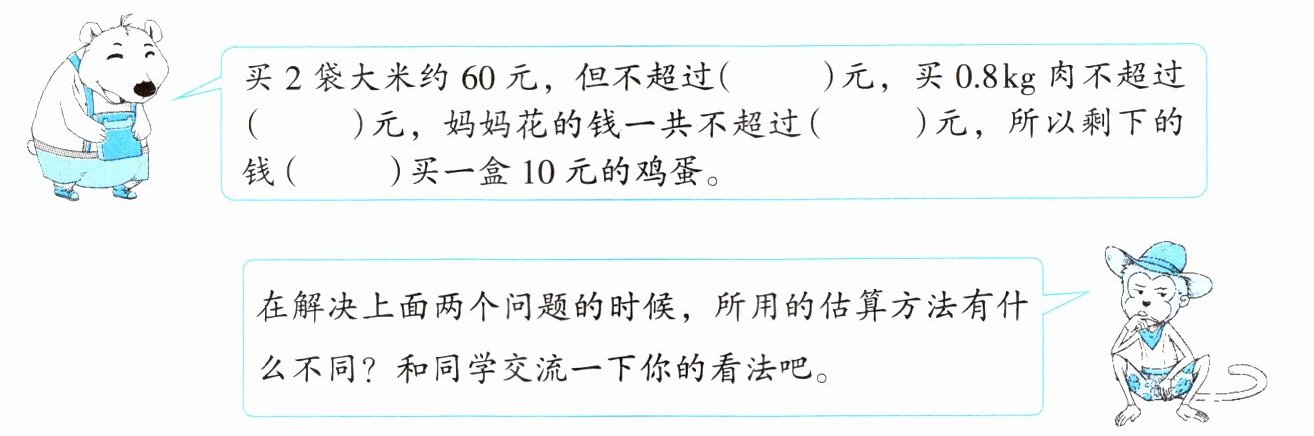 买 2 袋大米约 60 元，但不超过(　　)元，买 0.8kg 肉不超过
(　　)元，妈妈花的钱一共不超过(　　)元，所以剩下的
钱(　　)买一盒 10 元的鸡蛋。
在解决上面两个问题的时候，所用的估算方法有什
么不同？和同学交流一下你的看法吧。